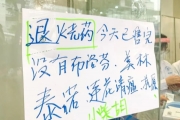 退烧药 今天已售完
没有布洛芬.美林
泰诺 莲花清瘟